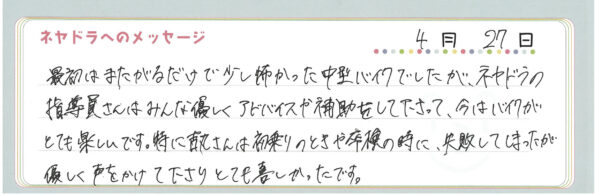 ネヤドラへのメッセージ
4月 27日
最初はまたがるだけで少し怖かった中型バイクでしたが、ネヤドラの
指導員さんはみんな優しくアドバイスや補助をして下さって、今はバイクが
とても楽しいです。特に さんは初乗りのときや卒検の時に、失敗してしまったが
優しく声をかけて下さりとても喜しかったです。